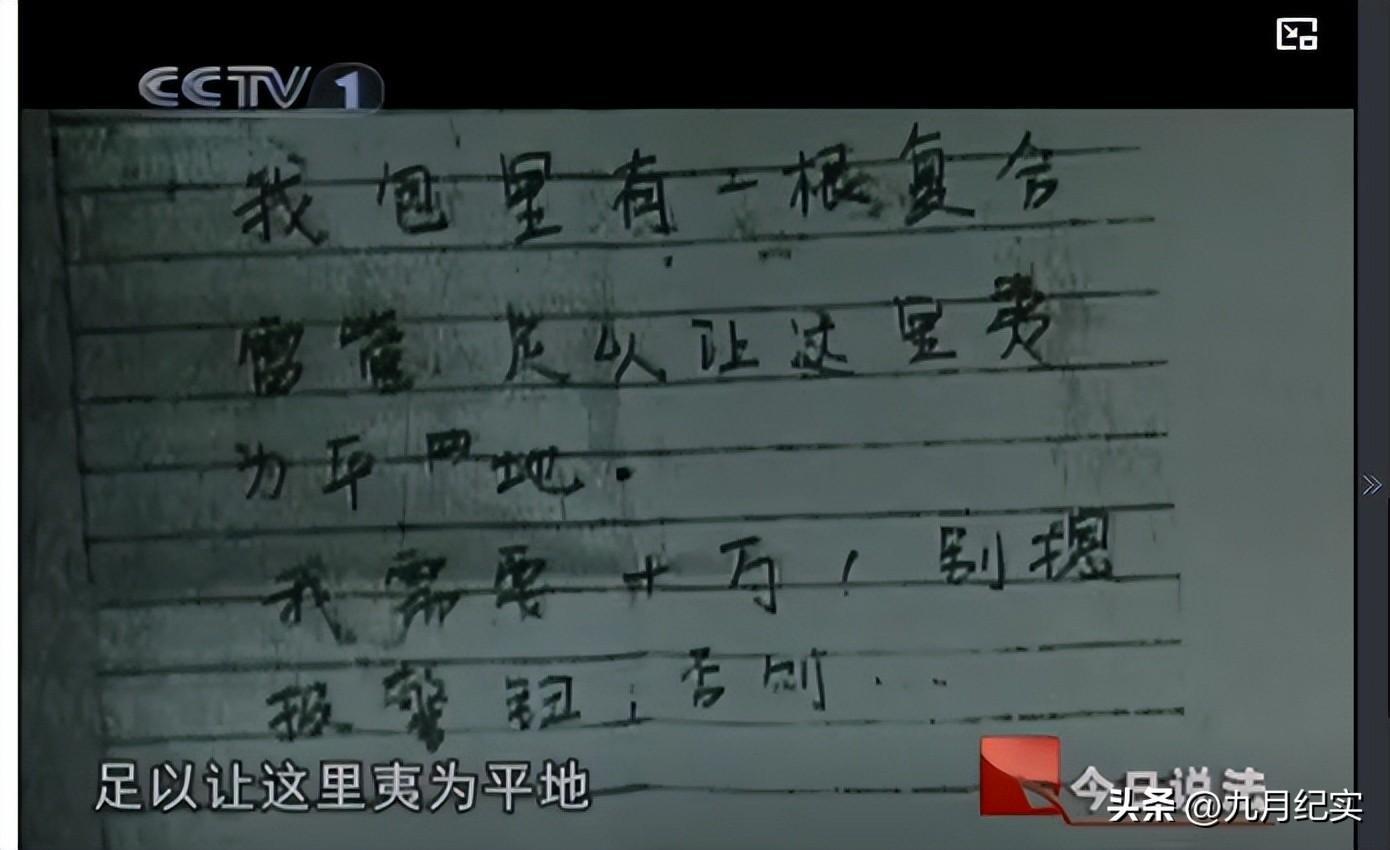 CCTV 1
我包里有一根复合
雷管 足以让这里夷
为平四地.
我需要十万, 别摁
报警钮, 否则...
足以让这里夷为平地
今日说法
头条 @九月纪实